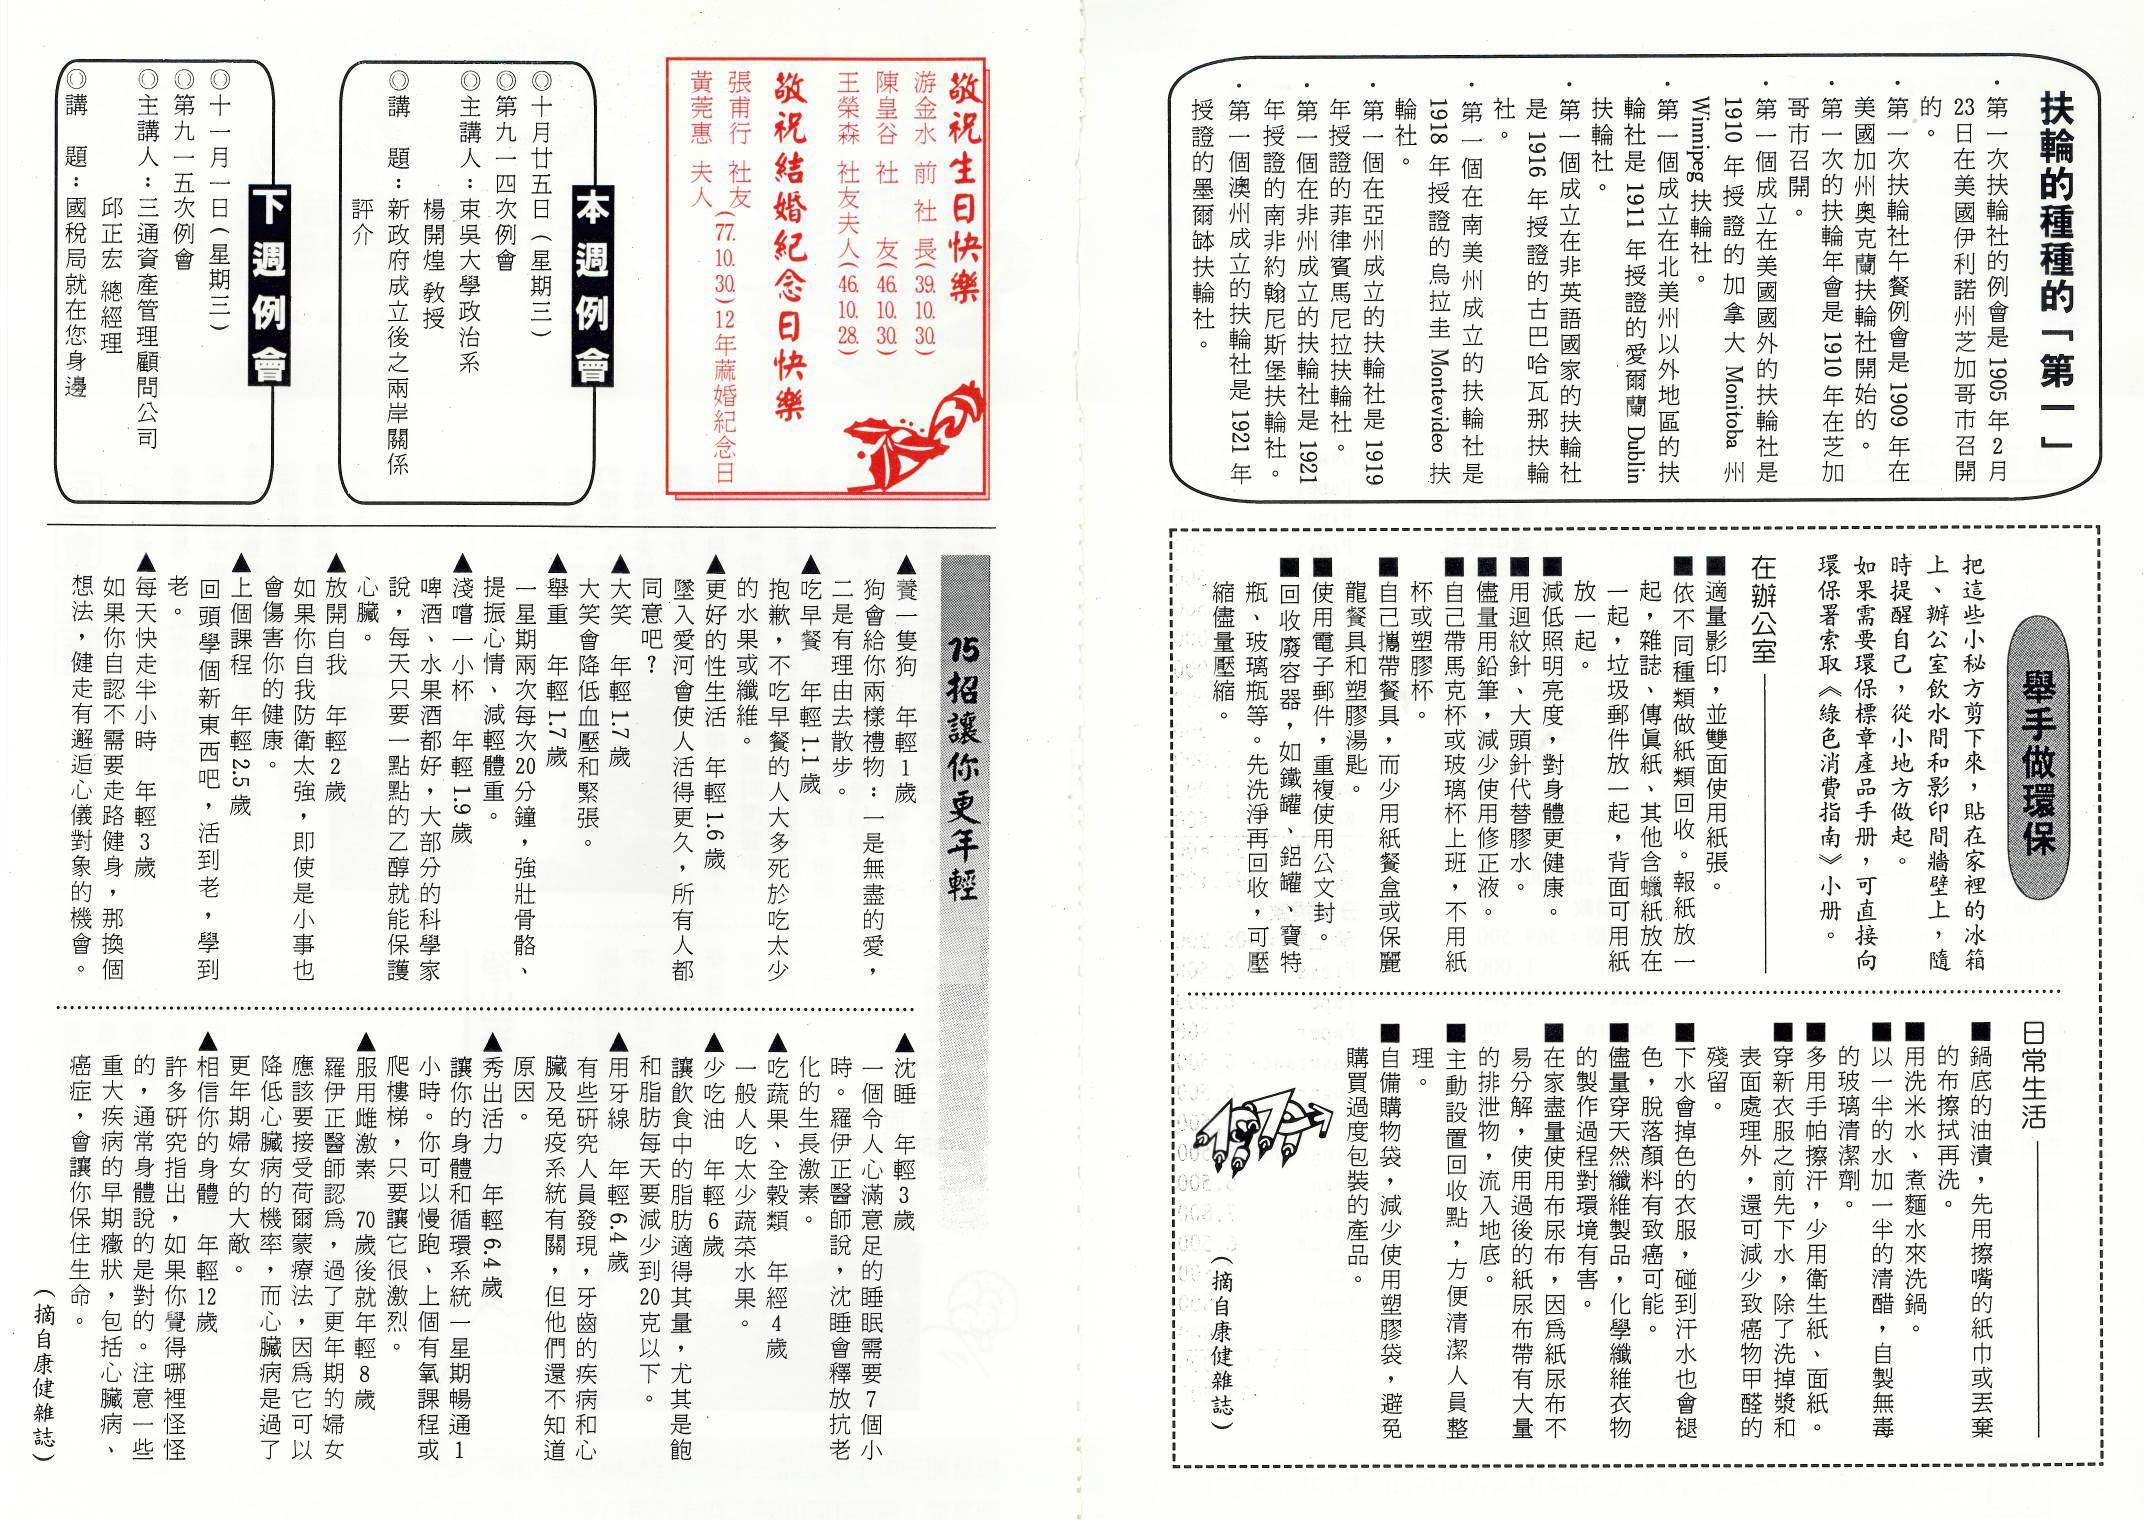 扶輪的種種的「第一」
．第一次扶輪社的例會是 1905 年 2 月
23 日在美國伊利諾州芝加哥市召開
的。
．第一次扶輪社午餐例會是 1909 年在
美國加州奧克蘭扶輪社開始的。
．第一次的扶輪年會是 1910 年在芝加
哥市召開。
．第一個成立在美國國外的扶輪社是
1910 年授證的加拿大 Monitoba 州
Winnipeg 扶輪社。
．第一個成立在北美州以外地區的扶
輪社是 1911 年授證的愛爾蘭 Dublin
扶輪社。
．第一個成立在非英語國家的扶輪社
是 1916 年授證的古巴哈瓦那扶輪
社。
．第一個在南美州成立的扶輪社是
1918 年授證的烏拉圭 Montevideo 扶
輪社。
．第一個在亞州成立的扶輪社是 1919
年授證的菲律賓馬尼拉扶輪社。
．第一個在非州成立的扶輪社是 1921
年授證的南非約翰尼斯堡扶輪社。
．第一個澳州成立的扶輪社是 1921 年
授證的墨爾缽扶輪社。
舉手做環保
把這些小秘方剪下來，貼在家裡的冰箱
上、辦公室飲水間和影印間牆壁上，隨
時提醒自己，從小地方做起。
如果需要環保標章產品手册，可直接向
環保署索取《綠色消費指南》小册。
在辦公室
■適量影印，並雙面使用紙張。
■依不同種類做紙類回收。報紙放一
起，雜誌、傳眞紙、其他含蠟紙放在
一起，垃圾郵件放一起，背面可用紙
放一起。
■減低照明亮度，對身體更健康。
■用迴紋針、大頭針代替膠水。
■儘量用鉛筆，減少使用修正液。
■自己帶馬克杯或玻璃杯上班，不用紙
杯或塑膠杯。
■自己攜帶餐具，而少用紙餐盒或保麗
龍餐具和塑膠湯匙。
■使用電子郵件，重複使用公文封。
■回收廢容器，如鐵罐、鋁罐、寶特
瓶、玻璃瓶等。先洗淨再回收，可壓
縮儘量壓縮。
日常生活
■鍋底的油漬，先用擦嘴的紙巾或丟棄
的布擦拭再洗。
■用洗米水、煮麵水來洗鍋。
■以一半的水加一半的清醋，自製無毒
的玻璃清潔劑。
■多用手帕擦汗，少用衛生紙、面紙。
■穿新衣服之前先下水，除了洗掉漿和
表面處理外，還可減少致癌物甲醛的
殘留。
■下水會掉色的衣服，碰到汗水也會褪
色，脫落顏料有致癌可能。
■儘量穿天然纖維製品，化學纖維衣物
的製作過程對環境有害。
■在家盡量使用布尿布，因爲紙尿布不
易分解，使用過後的紙尿布帶有大量
的排泄物，流入地底。
■主動設置回收點，方便清潔人員整
理。
■自備購物袋，減少使用塑膠袋，避免
購買過度包裝的產品。
（摘自康健雜誌）
敬祝生日快樂
游金水 前社長(39. 10. 30.)
陳皇谷 社　友(46. 10. 30.)
王榮森 社友夫人(46. 10. 28.)
敬祝結婚紀念日快樂
張甫行 社友
黃莞惠 夫人
(77. 10. 30.)12年蔴婚紀念日
本週例會
◎十月廿五日(星期三)
◎第九一四次例會
◎主講人：東吳大學政治系
楊開煌 教授
◎講　題：新政府成立後之兩岸關係
評介
下週例會
◎十一月一日(星期三)
◎第九一五次例會
◎主講人：三通資產管理顧問公司
邱正宏 總經理
◎講　題：國稅局就在您身邊
15招讓你更年輕
▲養一隻狗　年輕1歲
狗會給你兩樣禮物：一是無盡的愛，
二是有理由去散步。
▲吃早餐　年輕1.1歲
抱歉，不吃早餐的人大多死於吃太少
的水果或纖維。
▲更好的性生活　年輕1.6歲
墜入愛河會使人活得更久，所有人都
同意吧？
▲大笑　年輕1.7歲
大笑會降低血壓和緊張。
▲舉重　年輕1.7歲
一星期兩次每次20分鐘，強壯骨骼、
提振心情、減輕體重。
▲淺嚐一小杯　年輕1.9歲
啤酒、水果酒都好，大部分的科學家
說，每天只要一點點的乙醇就能保護
心臟。
▲放開自我　年輕2歲
如果你自我防衛太強，即使是小事也
會傷害你的健康。
▲上個課程　年輕2.5歲
回頭學個新東西吧，活到老，學到
老。
▲每天快走半小時　年輕3歲
如果你自認不需要走路健身，那換個
想法，健走有邂逅心儀對象的機會。
▲沈睡　年輕3歲
一個令人心滿意足的睡眠需要7個小
時。羅伊正醫師說，沈睡會釋放抗老
化的生長激素。
▲吃蔬果、全穀類　年經4歲
一般人吃太少蔬菜水果。
▲少吃油　年輕6歲
讓飲食中的脂肪適得其量，尤其是飽
和脂肪每天要減少到20克以下。
▲用牙線　年輕6.4歲
有些研究人員發現，牙齒的疾病和心
臟及免疫系統有關，但他們還不知道
原因。
▲秀出活力　年輕6.4歲
讓你的身體和循環系統一星期暢通1
小時。你可以慢跑、上個有氧課程或
爬樓梯，只要讓它很激烈。
▲服用雌激素　70歲後就年輕8歲
羅伊正醫師認爲，過了更年期的婦女
應該要接受荷爾蒙療法，因爲它可以
降低心臟病的機率，而心臟病是過了
更年期婦女的大敵。
▲相信你的身體　年輕12歲
許多研究指出，如果你覺得哪裡怪怪
的，通常身體說的是對的。注意一些
重大疾病的早期癥狀，包括心臟病、
癌症，會讓你保住生命。
（摘自康健雜誌）